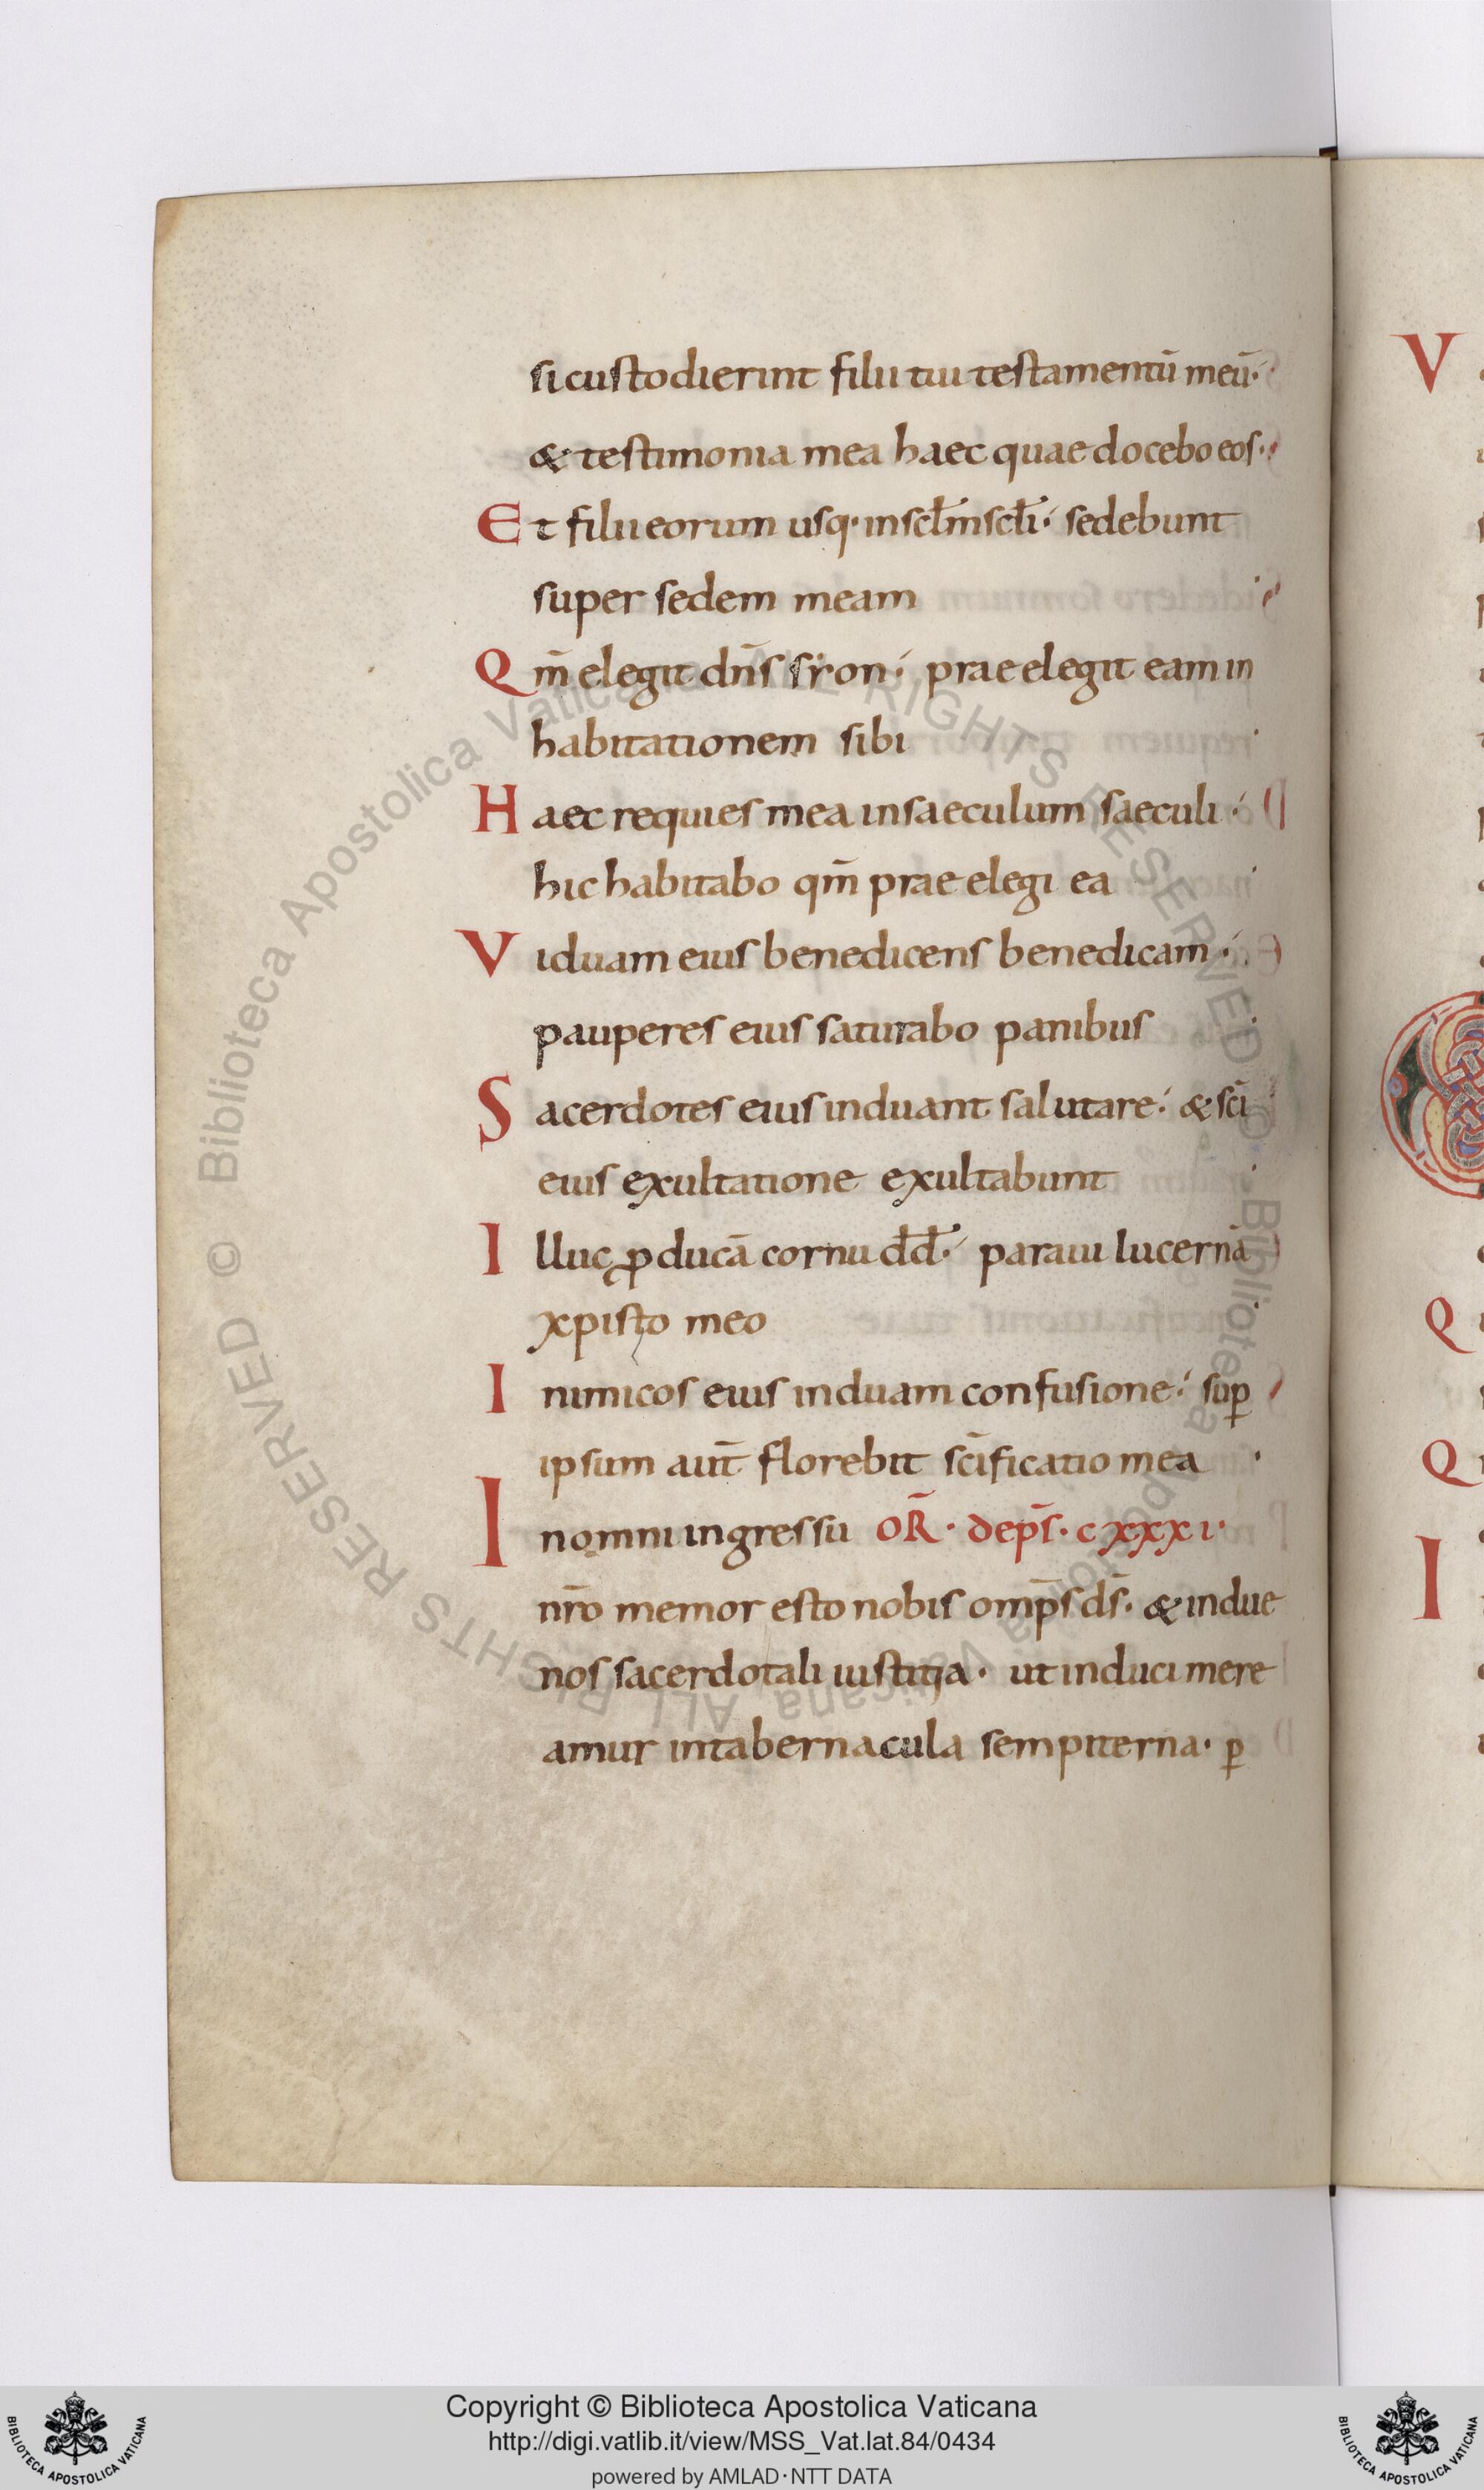 si custodierint filii tui testamentū meū·
& testimonia mea haec quae docebo eos·
Et filii eorum usq· in sc̄l̄m sc̄l̄i· sedebunt
super sedem meam
Qm̄ elegit dn̄s syon· prae elegit eam in
habitationem sibi
Haec requies mea in saeculum saeculi·
hic habitabo qm̄ prae elegi ea
Viduam eius benedicens benedicam·
pauperes eius saturabo panibus
Sacerdotes eius induant salutare· & sc̄i
eius exultatione exultabunt
Illuc ꝓducā cornu dd̄· paravi lucernā
xpisto meo
Inimicos eius induam confusione· suꝑ
ipsum aut̄ florebit sc̄ificatio mea
In omni ingressu OR̄· de ps̄· cxxxi·
nr̄o memor esto nobis omp̄s ds̄· & indue
nos sacerdotali iustitia· ut induci mere
amur in tabernacula sempiterna· ꝑ
V
Q
Q
I
© Biblioteca Apostolica Vaticana ALL RIGHTS RESERVED © Biblioteca Apostolica Vaticana ALL RIGHTS RESERVED
Copyright © Biblioteca Apostolica Vaticana
http://digi.vatlib.it/view/MSS_Vat.lat.84/0434
powered by AMLAD·NTT DATA
BIBLIOTECA APOSTOLICA VATICANA
BIBLIOTECA APOSTOLICA VATICANA